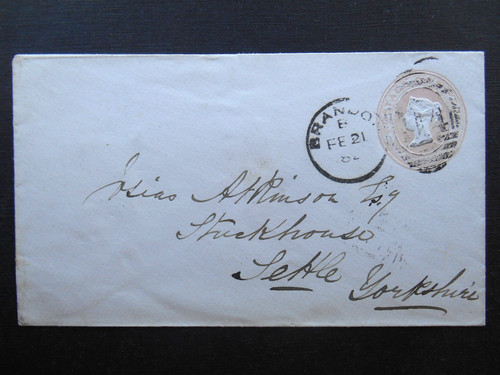 BRANDON
B
FE 21
82
Josias Atkinson Esq
Stackhouse
Settle
Yorkshire